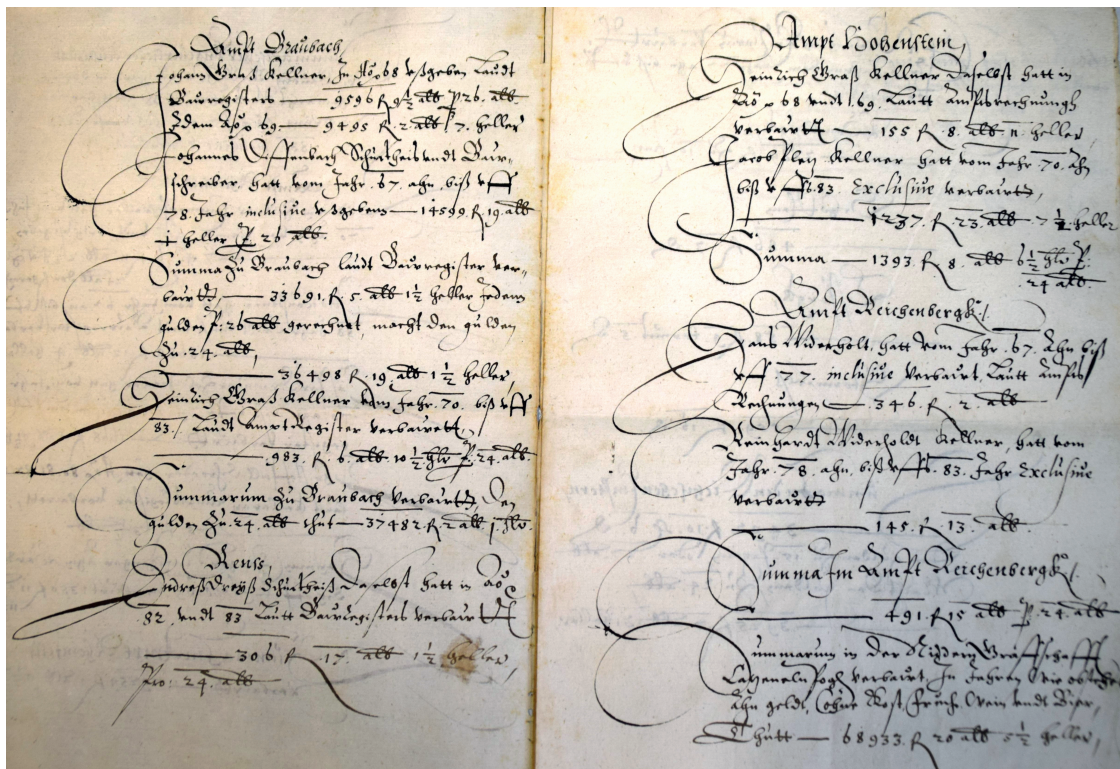 Ampt Braubach,
Johan Graß Kellner, In Aõ 68 vßgeben Laudt
Bawregisters — 9596 f 9½ alb P 26. alb.
Idem Aõ 69. — 9495 f. 2. alb 7. heller
Johannes Schultheis vndt Baw-
schreiber, hatt vom Jahr .67. ahn biß vff
78. Jahr inclusiue vßgeben — 14599. f. 19. alb
heller P. 26 alb.
Summa zu Braubach laudt Bawregister ver-
bawtt, — 33691. f 5. alb 1½ heller Jedem
gulden P. 26 alb gerechnet, macht den gulden
Zu .24. alb,
— 36498 f. 19. alb 1½ heller,
Heinrich Graß Kellner vom Jahr .70. biß vff
83. Laudt Ampt Register verbawett,
— 983. f. 6. alb. 10½ hlr P. 24. alb.
Summarum zu Braubach verbawtt, den
gulden zu .24. alb thut — 37482 f. 2. alb j. hlr.
Renß,
Schultheiß Daselbst hatt in Aõ
.82. vndt 83. Lautt Bawregisters verbawtt
— 306. f. 17. alb 1½ heller,
Pro: 24. alb
Ampt Hohenstein,
Heinrich Graß Kellner daselbst hatt in
Aõ 68 vndt .69. Lautt Amptsrechnungh
verbawtt — 155 f. 8. alb heller
Jacob Kellner hatt vom Jahr .70. ahn
biß vff .83. Exclusiue verbawtt,
— 1237. f. 23. alb 7½ heller
Summa — 1393. f. 8. alb 6½ hlr P.
.24 alb.
Ampt Reichenbergk.
Hans Widerholt, hatt vom Jahr .67. Ahn biß
vff 77. inclusiue verbawt, Lautt Ampts
Rechnungen — 346. f. 2. alb
Reinhardt Widerholdt Kellner, hatt vom
Jahr .78. ahn. biß vffs. 83. Jahr Exclusiue
verbawtt
— 145. f. 13. alb.
Summa Im Ampt Reichenbergk.
— 491. f 15 alb P. 24. alb
Summarum in der Nidern Graffschafft
verbawt, In Jahren wie
Ahn geldt, ohne Kost, frucht, Wein vndt Bier,
Thutt — 68933. f. 20 alb 5½ heller,